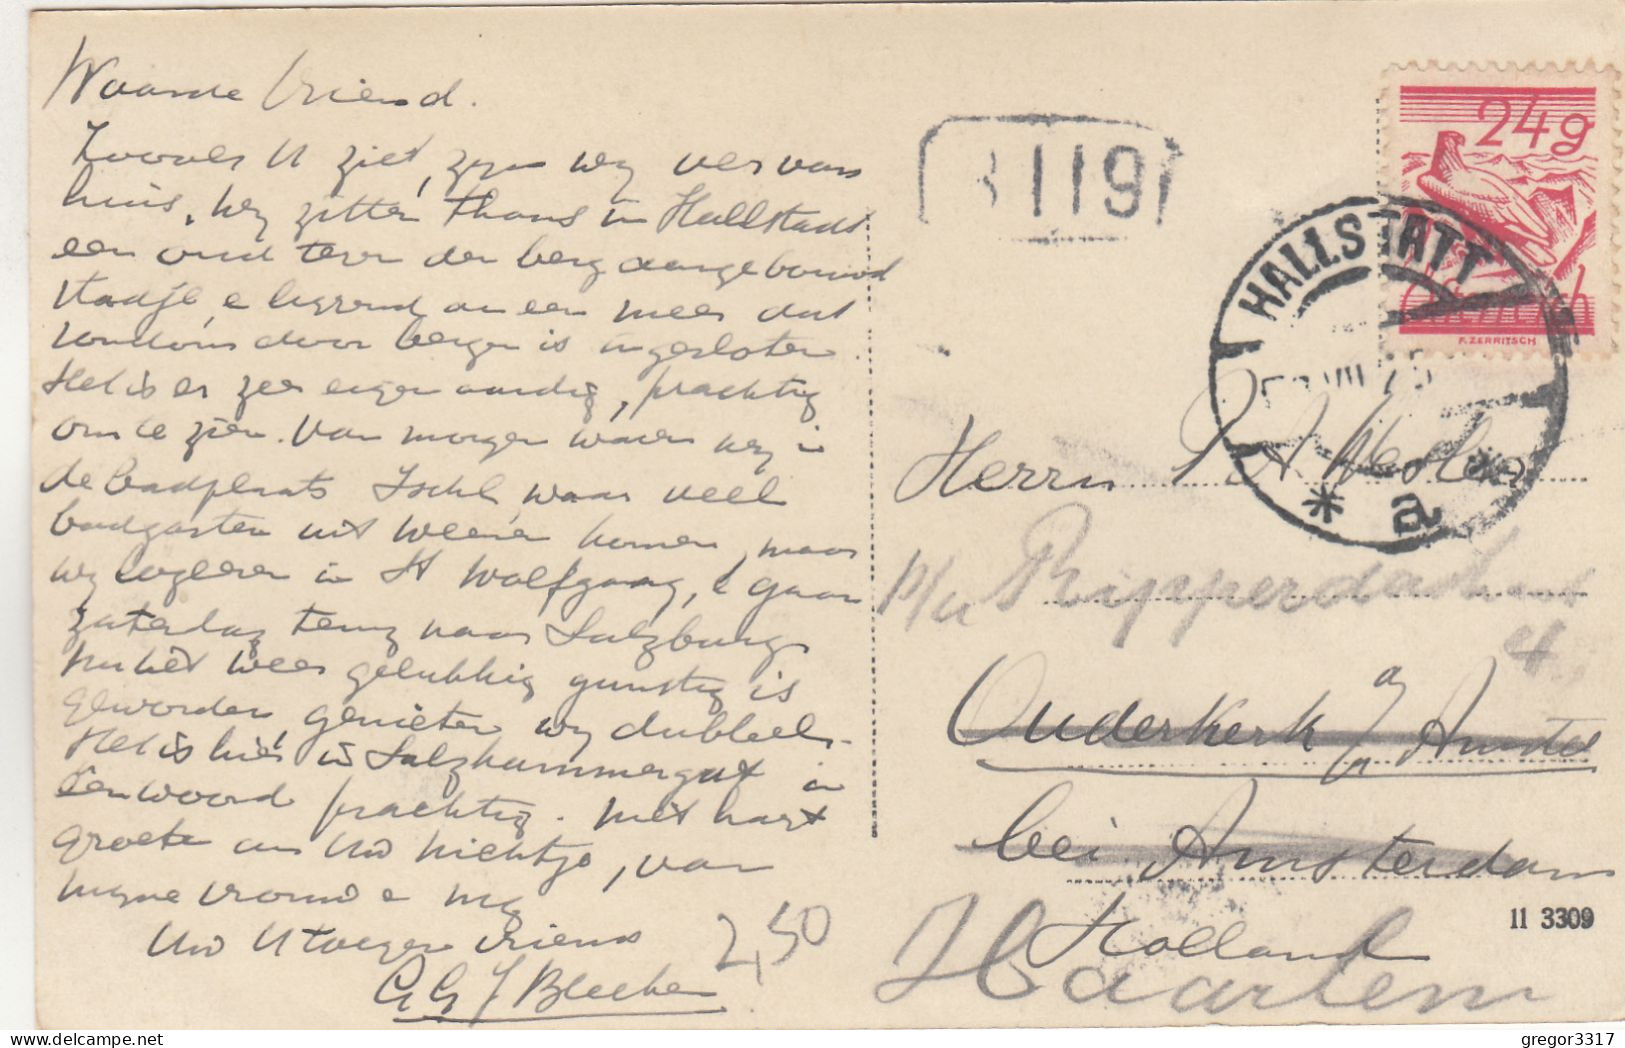 Waarde Vriend.
Zooals U ziet, zijn wij ver van
huis, wij zitten thans in Hallstadt
een oud tegen den berg aangebouwd
stadje, e liggend aan een meer dat
rondom door bergen is ingesloten.
Het is er zeer eigenaardig, prachtig
om te zien. Van morgen waren wij in
de badplaats Ischl, waar veel
badgasten uit Weenen komen, maar
wij logeeren in St Wolfgang, & gaan
zaterdag terug naar Salzburg.
Nu het weer gelukkig gunstig is
geworden, genieten wij dubbel.
Het is hier in Salzkammergut in
één woord prachtig. Met hart
groeten aan Uw nichtje, van
mijne vrouw e mij
Uw U toegen vriend
G G J Bleeker
2,50
31191
24g
Österreich
F. ZERRITSCH
HALLSTATT
VIII
* a *
Herrn P A
p/a Ripperdastraat
4
Ouderkerk a/ Amstel
bei Amsterdam
Holland
Haarlem
11 3309
gregor3317